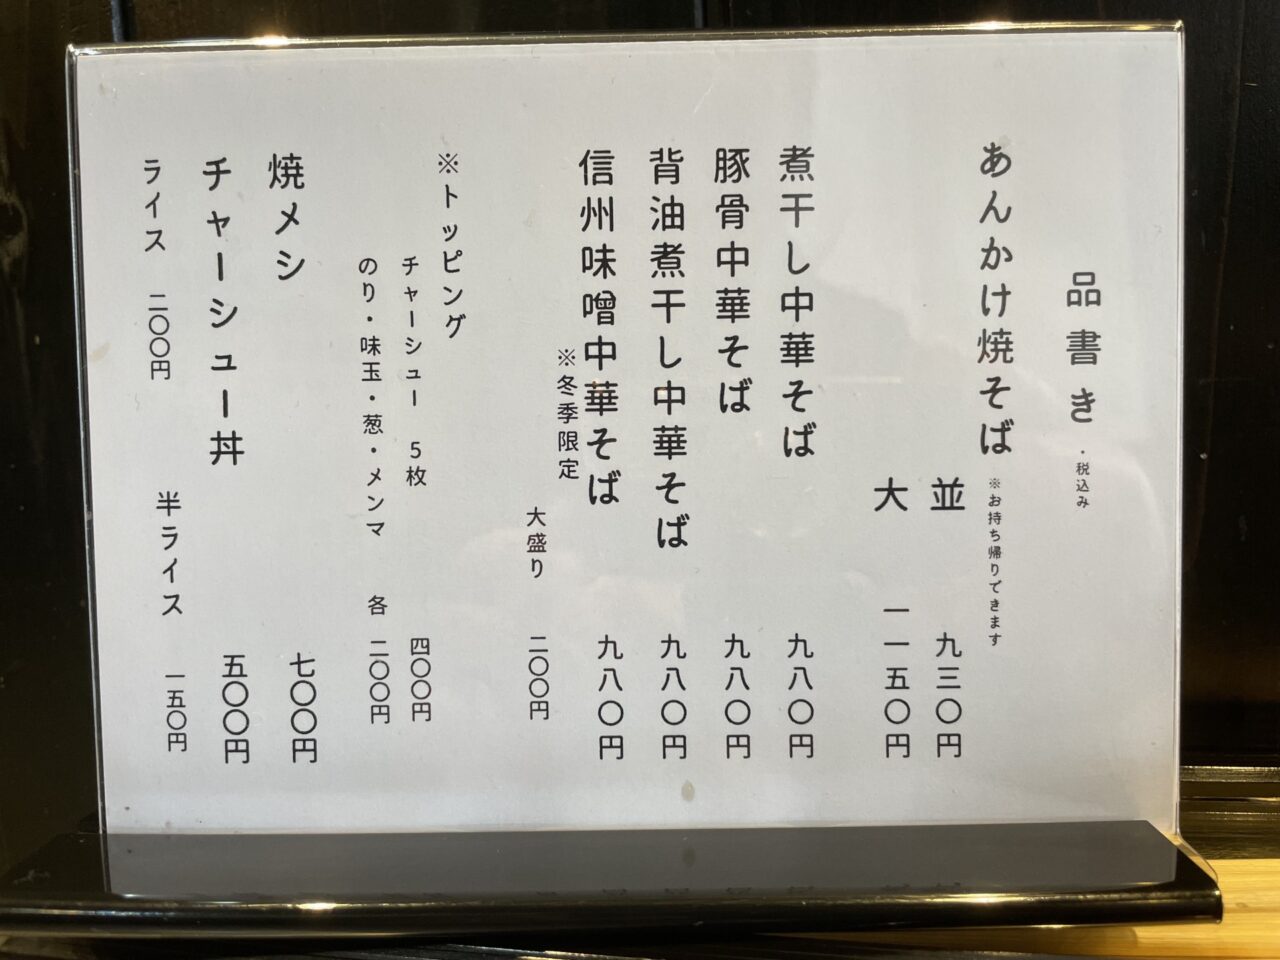 品書き ・税込み
あんかけ焼そば ※お持ち帰りできます
並 九三〇円
大 一一五〇円
煮干し中華そば 九八〇円
豚骨中華そば 九八〇円
背油煮干し中華そば 九八〇円
信州味噌中華そば 九八〇円
※冬季限定
大盛り 二〇〇円
※トッピング
チャーシュー 5枚 四〇〇円
のり・味玉・葱・メンマ 各 二〇〇円
焼メシ 七〇〇円
チャーシュー丼 五〇〇円
ライス 二〇〇円 半ライス 一五〇円